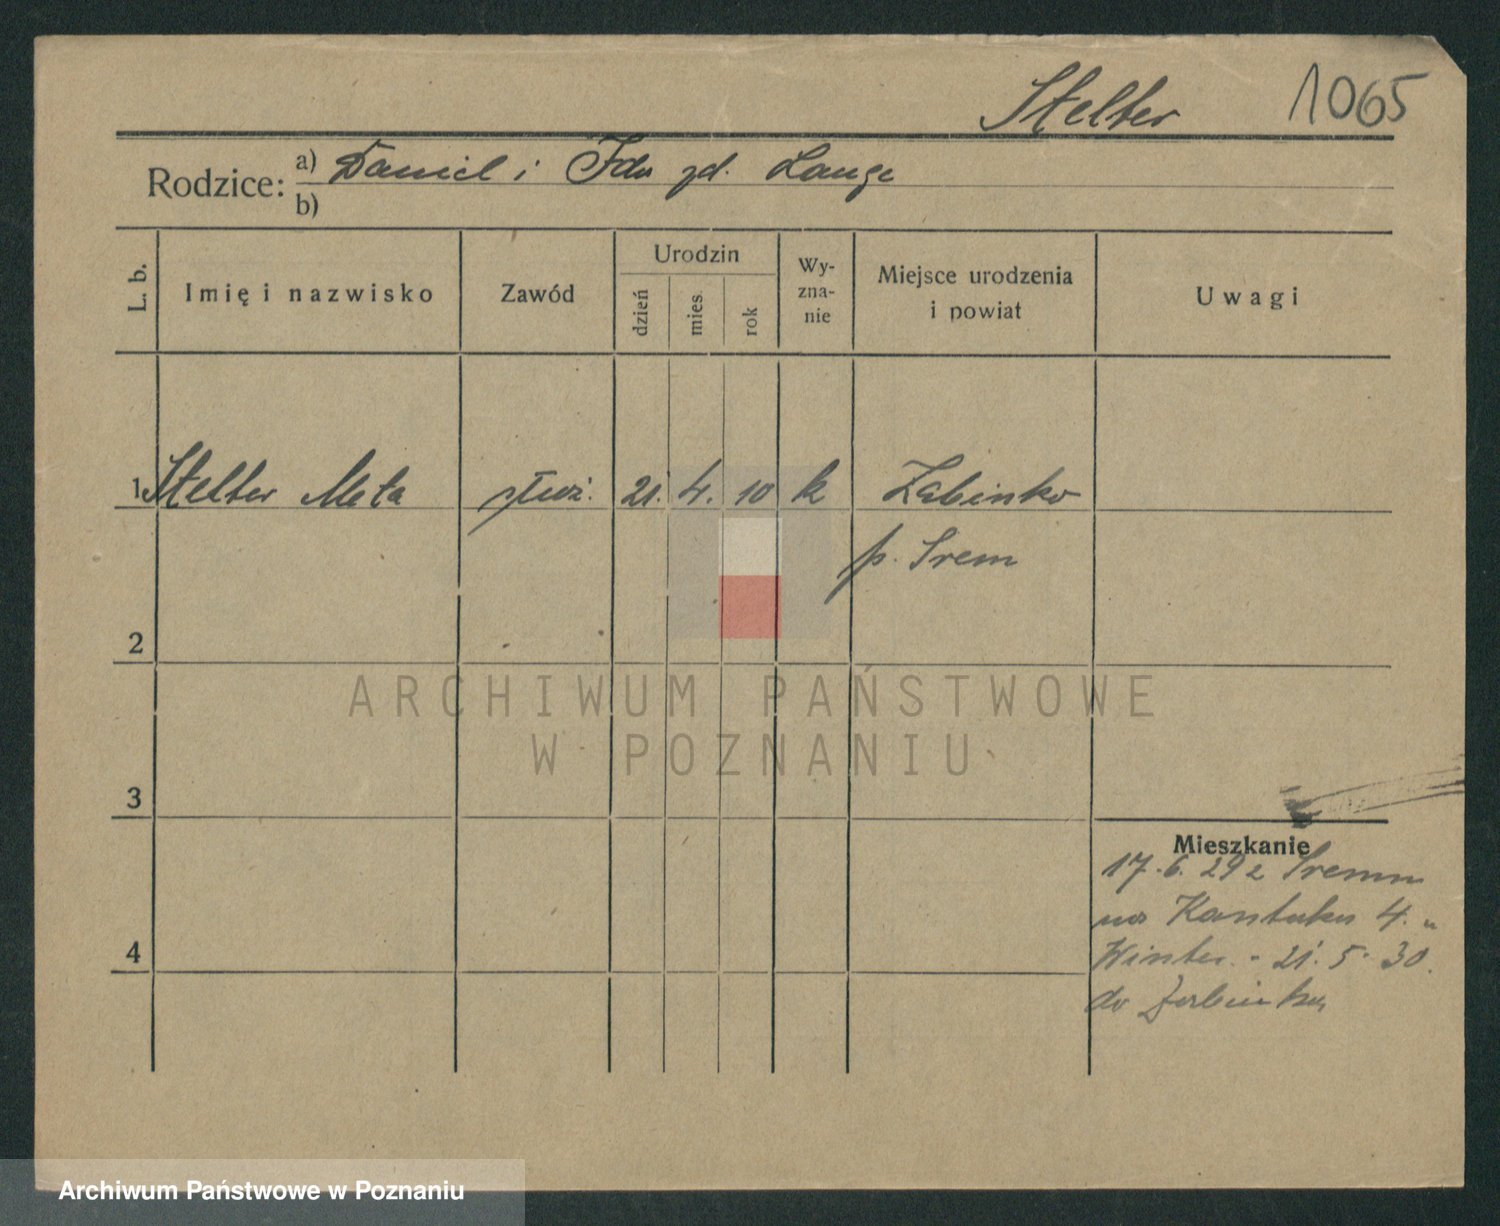 Stelter 1065
Rodzice: a) Daniel i Ida zd. Lange
b)
L. b.
Imię i nazwisko
Zawód
Urodzin
dzień
mies.
rok
Wy-
zna-
nie
Miejsce urodzenia
i powiat
Uwagi
1 Stelter Meta służ. 21. 4. 10 k Żabinko
p. Śrem
2
3
4
Mieszkanie
17. 6. 29 z Śremu
na 4.
Winter - 21. 5. 30.
do Żabinka
ARCHIWUM PAŃSTWOWE
W POZNANIU
Archiwum Państwowe w Poznaniu